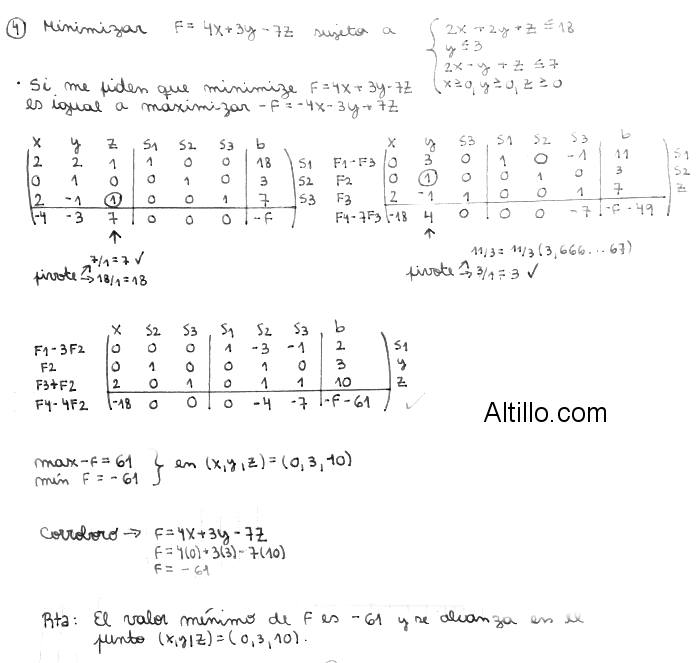 4) Minimizar F = 4x+3y-7z sujeto a
2x+2y+z≤18
y≤3
2x-y+z≤7
x≥0, y≥0, z≥0
· Si me piden que minimize F=4x+3y-7z
es igual a máximizar -F=-4x-3y+7z
x y z S1 S2 S3 b
2 2 1 1 0 0 18 S1
0 1 0 0 1 0 3 S2
2 -1 1 0 0 1 7 S3
-4 -3 7 0 0 0 -F
7/1=7 ✓
pivote 18/1=18
x y S3 S1 S2 S3 b
F1-F3 0 3 0 1 0 -1 11 S1
F2 0 1 0 0 1 0 3 S2
F3 2 -1 1 0 0 1 7 z
F4-7F3 -18 4 0 0 0 -7 -F-49
11/3 = 11/3 (3,666...67)
pivote 3/1=3 ✓
x S2 S3 S1 S2 S3 b
F1-3F2 0 0 0 1 -3 -1 2 S1
F2 0 1 0 0 1 0 3 y
F3+F2 2 0 1 0 1 1 10 z
F4-4F2 -18 0 0 0 -4 -7 -F-61
Altillo.com
max-F=61
mín F=-61 } en (x,y,z)=(0,3,10)
Corroboro → F=4x+3y-7z
F=4(0)+3(3)-7(10)
F=-61
Rta: El valor mínimo de F es -61 y se alcanza en el
punto (x,y,z)=(0,3,10).